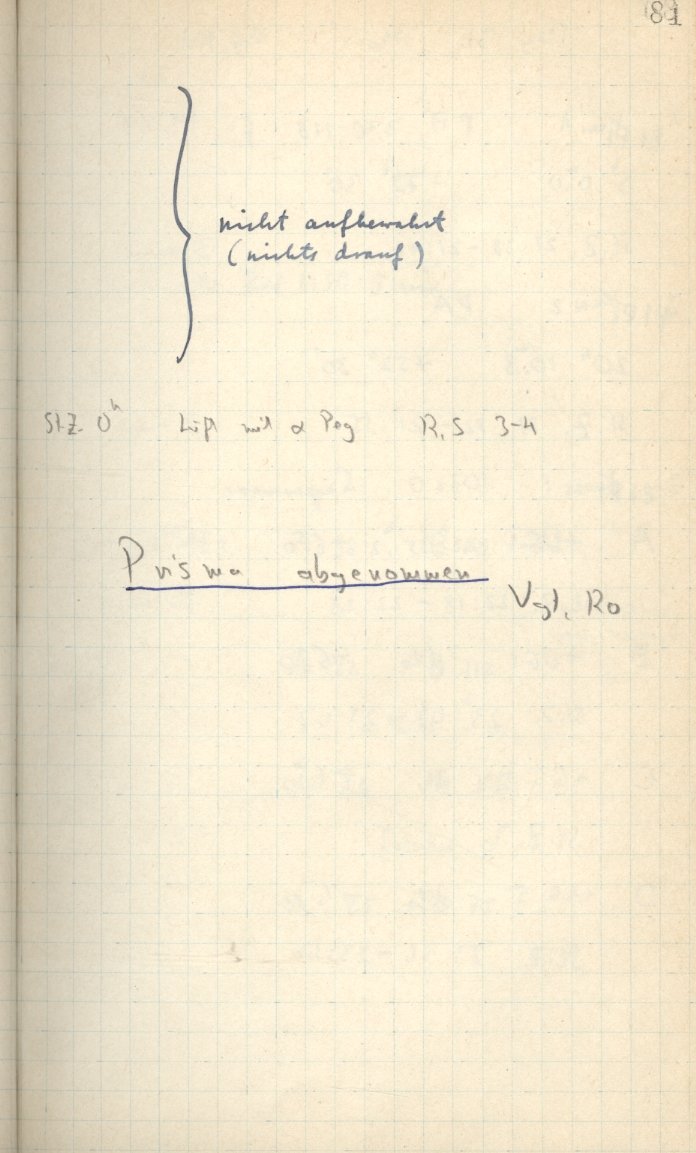 81
nicht aufbewahrt
(nichts drauf)
St.Z. 0h Luft mit α Peg R, S 3-4
Prisma abgenommen
Vgl. Ro